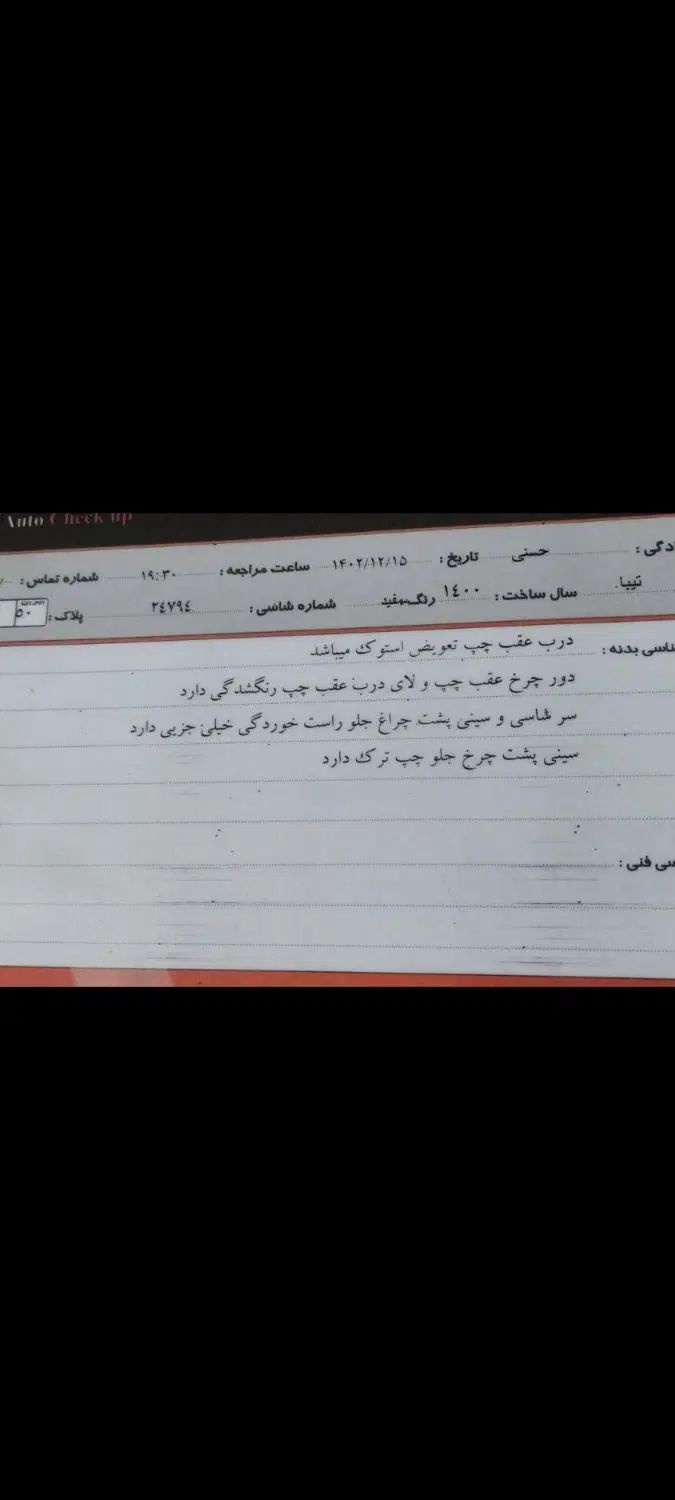 Auto Check up
دگی : حسنی تاریخ : ۱۴۰۲/۱۲/۱۵ ساعت مراجعه : ۱۹:۳۰ شماره تماس :
تیبا سال ساخت : ۱۴۰۰ رنگ سفید شماره شاسی : ۲۴۷۹۴ پلاک : ۵۰
ناسی بدنه : درب عقب چپ تعویض استوک میباشد
دور چرخ عقب چپ و لای درب عقب چپ رنگشدگی دارد
سر شاسی و سینی پشت چراغ جلو راست خوردگی خیلی جزیی دارد
سینی پشت چرخ جلو چپ ترک دارد
سی فنی :